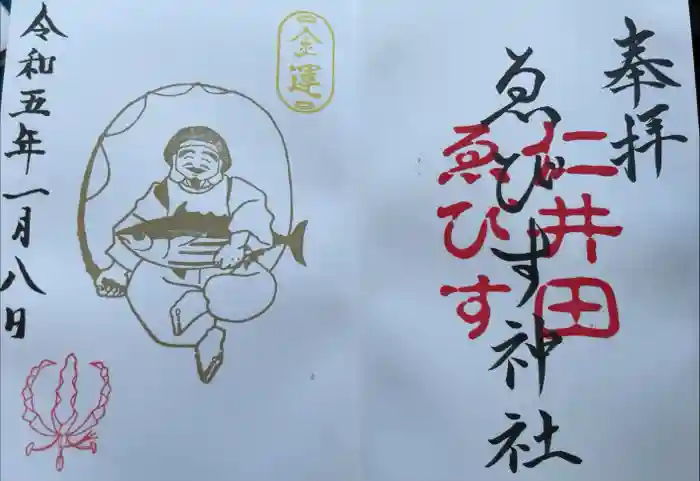 奉拝
仁井田
ゑびす
ゑびす神社
金運
令和五年一月八日